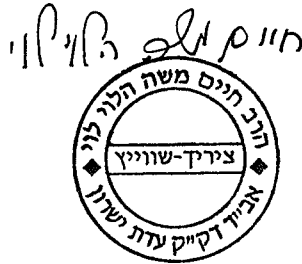 חיים משה הלוי לוי
הרב חיים משה הלוי לוי
ציריך-שווייץ
אב״ד דק״ק עדת ישרון